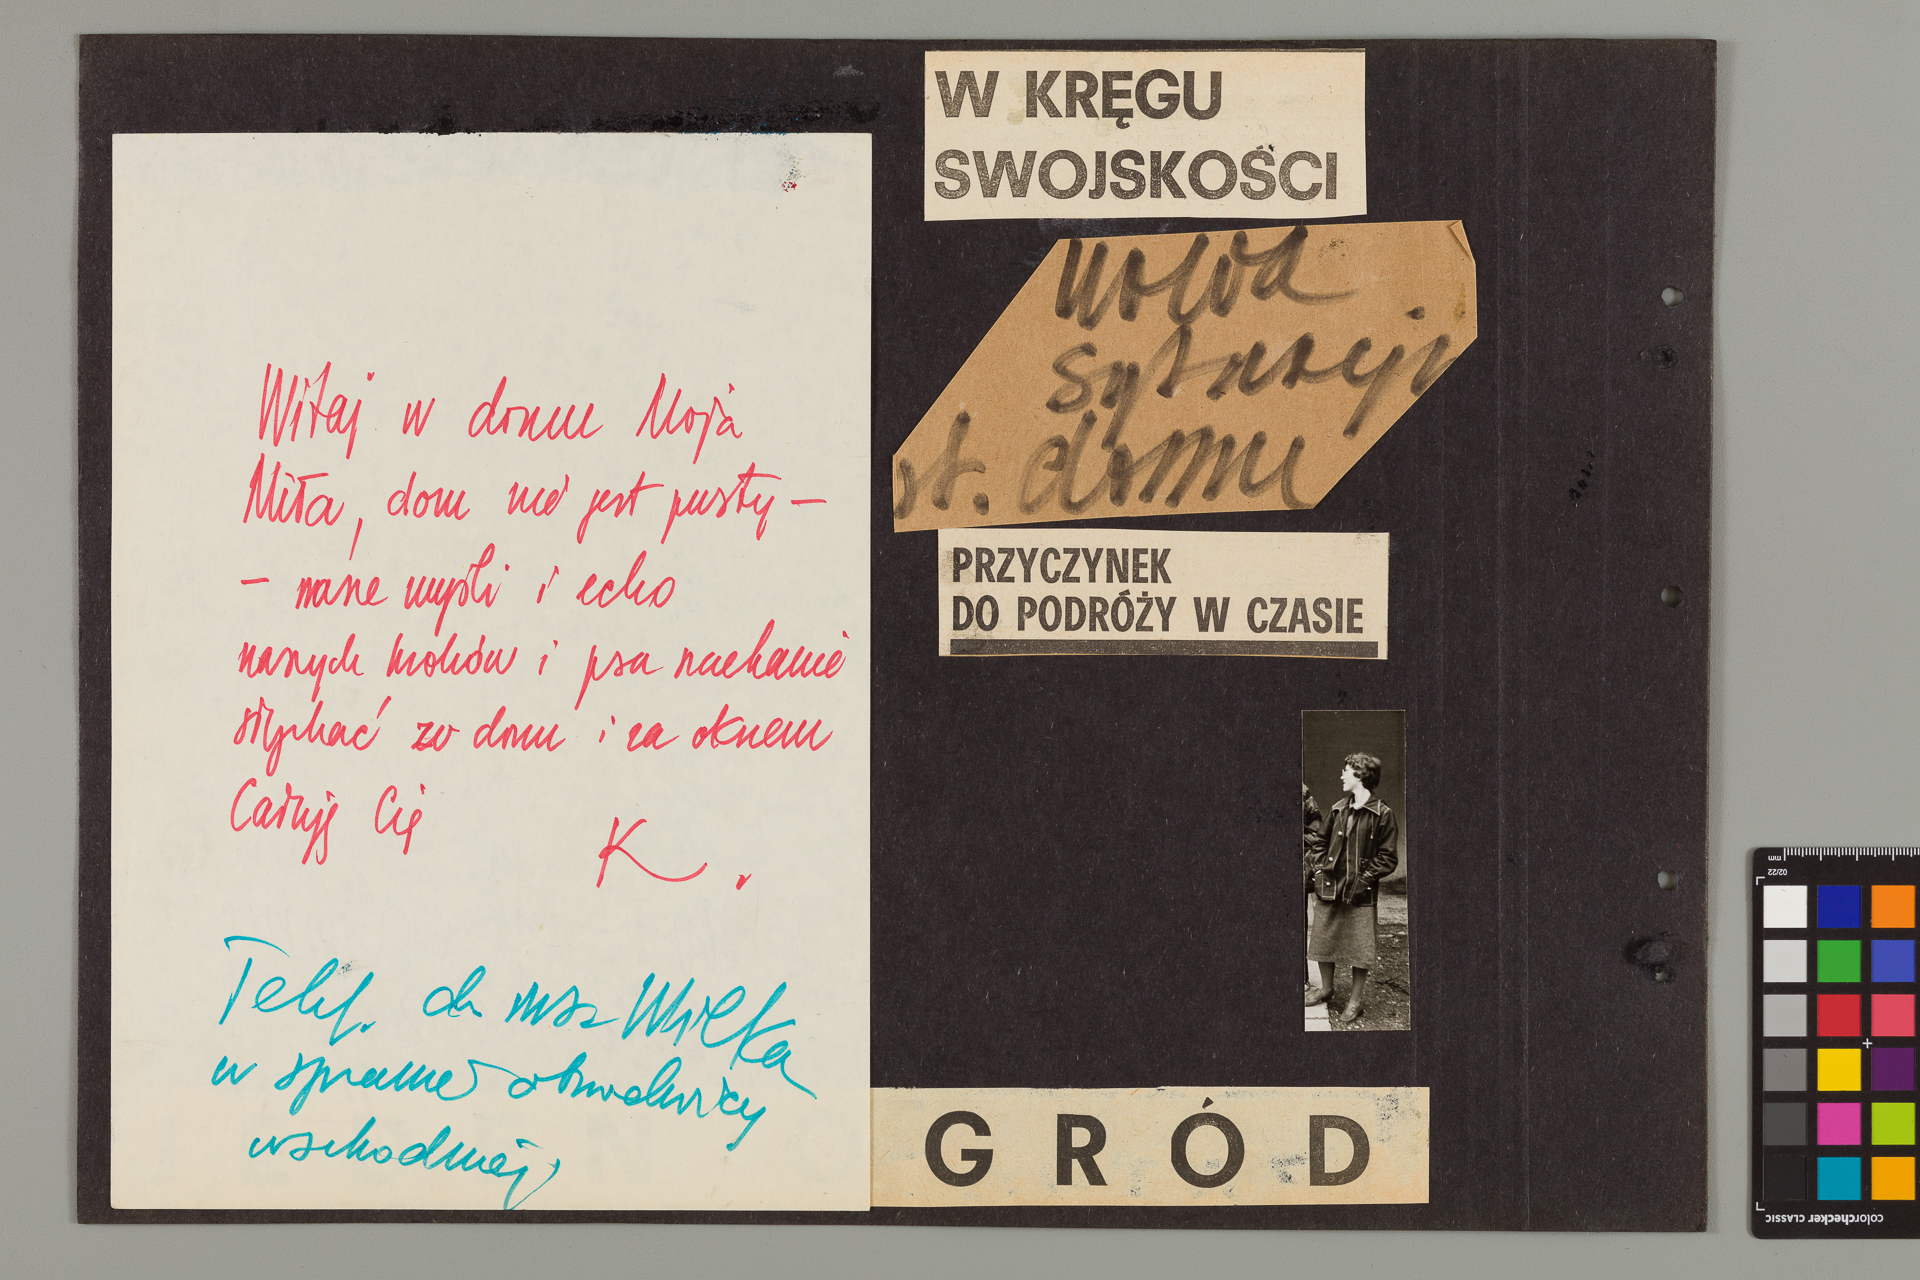 Witaj w domu Moja
Miła, dom nie jest pusty –
– nasze myśli i echo
naszych kroków i psa szczekanie
słychać ze domu i za oknem
Całuję Cię
K.
Telef. do
w sprawie obwodnicy
wschodniej,
W KRĘGU
SWOJSKOŚCI
wokół
st. domu
PRZYCZYNEK
DO PODRÓŻY W CZASIE
GRÓD
mm
02/22
colorchecker CLASSIC